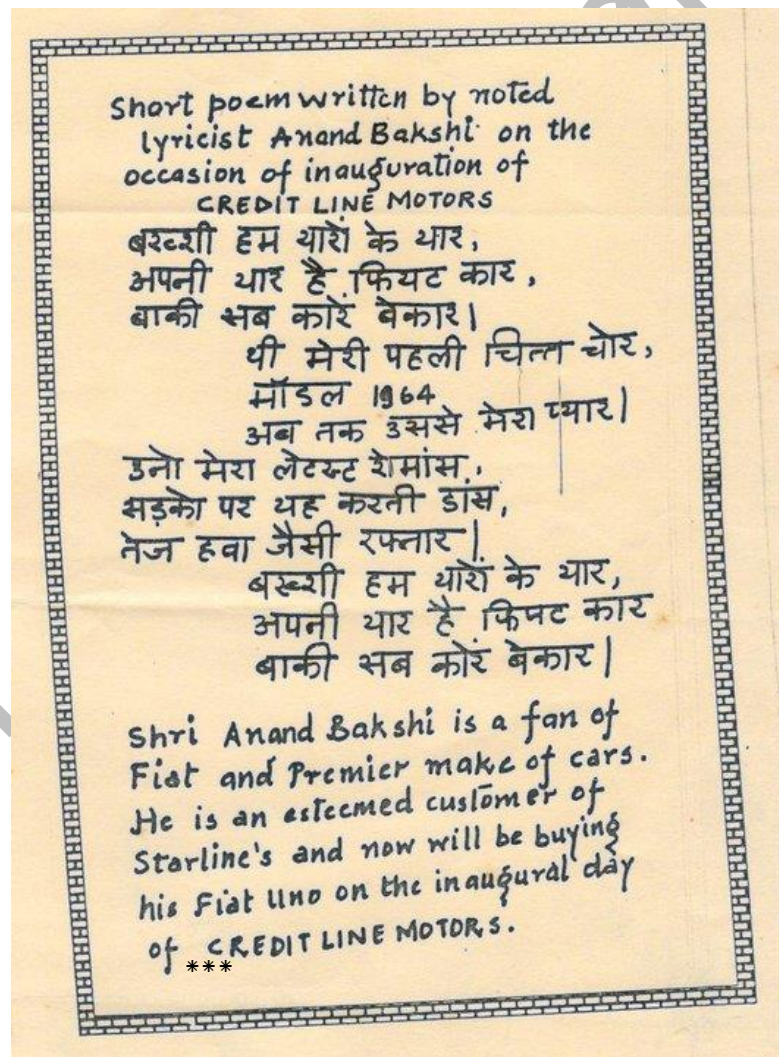 Short poem written by noted
lyricist Anand Bakshi on the
occasion of inauguration of
CREDIT LINE MOTORS
बख्शी हम यारों के यार,
अपनी यार है फियट कार,
बाकी सब कारें बेकार।
थी मेरी पहली चित्त चोर,
मॉडल 1964
अब तक उससे मेरा प्यार।
उनो मेरा लेटस्ट रोमांस,
सड़को पर यह करती डांस,
तेज हवा जैसी रफ्तार।
बख्शी हम यारों के यार,
अपनी यार है फियट कार
बाकी सब कारें बेकार।
Shri Anand Bakshi is a fan of
Fiat and Premier make of cars.
He is an esteemed customer of
Starline's and now will be buying
his Fiat Uno on the inaugural day
of CREDIT LINE MOTORS.
***